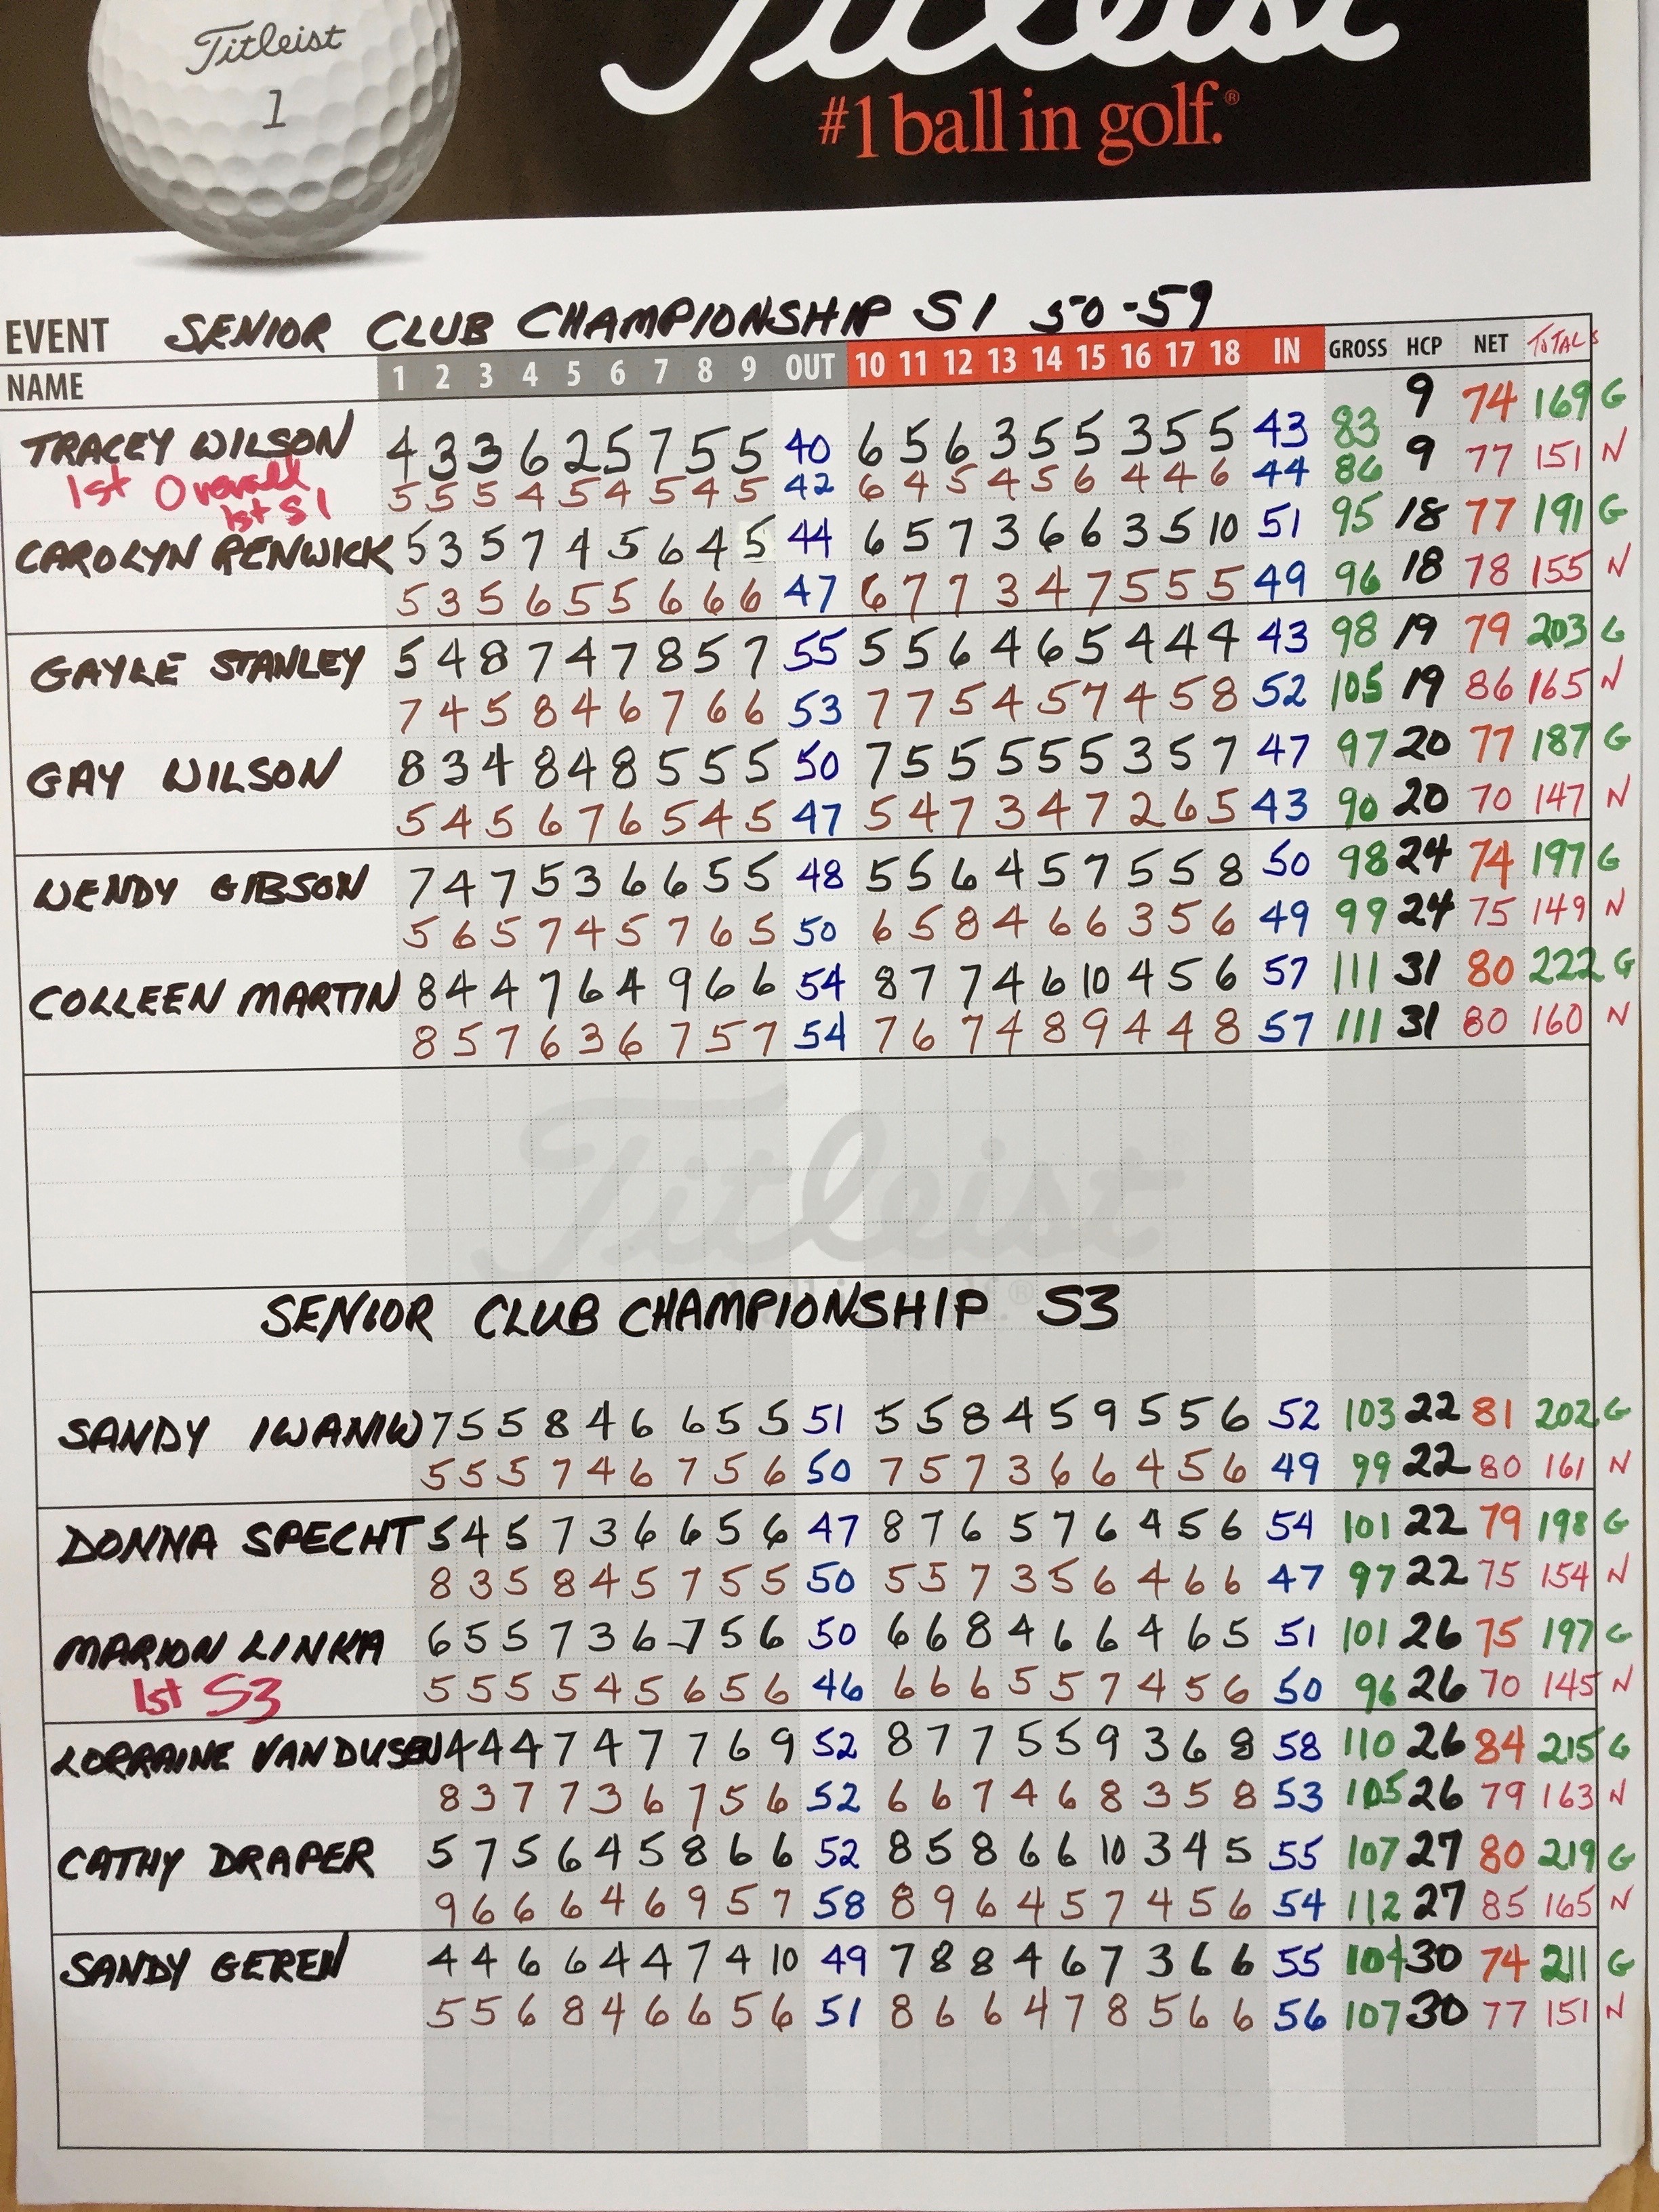 Titleist
1
Titleist
#1 ball in golf.®
EVENT SENIOR CLUB CHAMPIONSHIP S1 50-59
NAME 1 2 3 4 5 6 7 8 9 OUT 10 11 12 13 14 15 16 17 18 IN GROSS HCP NET TOTALS
TRACEY WILSON 4 3 3 6 2 5 7 5 5 40 6 5 6 3 5 5 3 5 5 43 83 9 74 169 G
1st Overall 5 5 5 4 5 4 5 4 5 42 6 4 5 4 5 6 4 4 6 44 86 9 77 151 N
1st S1
CAROLYN RENWICK 5 3 5 7 4 5 6 4 5 44 6 5 7 3 6 6 3 5 10 51 95 18 77 191 G
5 3 5 6 5 5 6 6 6 47 6 7 7 3 4 7 5 5 5 49 96 18 78 155 N
GAYLE STANLEY 5 4 8 7 4 7 8 5 7 55 5 5 6 4 6 5 4 4 4 43 98 19 79 203 G
7 4 5 8 4 6 7 6 6 53 7 7 5 4 5 7 4 5 8 52 105 19 86 165 N
GAY WILSON 8 3 4 8 4 8 5 5 5 50 7 5 5 5 5 5 3 5 7 47 97 20 77 187 G
5 4 5 6 7 6 5 4 5 47 5 4 7 3 4 7 2 6 5 43 90 20 70 147 N
WENDY GIBSON 7 4 7 5 3 6 6 5 5 48 5 5 6 4 5 7 5 5 8 50 98 24 74 197 G
5 6 5 7 4 5 7 6 5 50 6 5 8 4 6 6 3 5 6 49 99 24 75 149 N
COLLEEN MARTIN 8 4 4 7 6 4 9 6 6 54 8 7 7 4 6 10 4 5 6 57 111 31 80 222 G
8 5 7 6 3 6 7 5 7 54 7 6 7 4 8 9 4 4 8 57 111 31 80 160 N
Titleist
SENIOR CLUB CHAMPIONSHIP S3
SANDY IWANIW 7 5 5 8 4 6 6 5 5 51 5 5 8 4 5 9 5 5 6 52 103 22 81 202 G
5 5 5 7 4 6 7 5 6 50 7 5 7 3 6 6 4 5 6 49 99 22 80 161 N
DONNA SPECHT 5 4 5 7 3 6 6 5 6 47 8 7 6 5 7 6 4 5 6 54 101 22 79 198 G
8 3 5 8 4 5 7 5 5 50 5 5 7 3 5 6 4 6 6 47 97 22 75 154 N
MARION LINKA 6 5 5 7 3 6 7 5 6 50 6 6 8 4 6 6 4 6 5 51 101 26 75 197 G
1st S3 5 5 5 5 4 5 6 5 6 46 6 6 6 5 5 7 4 5 6 50 96 26 70 145 N
LORRAINE VANDUSEN 4 4 4 7 4 7 7 6 9 52 8 7 7 5 5 9 3 6 8 58 110 26 84 215 G
8 3 7 7 3 6 7 5 6 52 6 6 7 4 6 8 3 5 8 53 105 26 79 163 N
CATHY DRAPER 5 7 5 6 4 5 8 6 6 52 8 5 8 6 6 10 3 4 5 55 107 27 80 219 G
9 6 6 6 4 6 9 5 7 58 8 9 6 4 5 7 4 5 6 54 112 27 85 165 N
SANDY GEREN 4 4 6 6 4 4 7 4 10 49 7 8 8 4 6 7 3 6 6 55 104 30 74 211 G
5 5 6 8 4 6 6 5 6 51 8 6 6 4 7 8 5 6 6 56 107 30 77 151 N